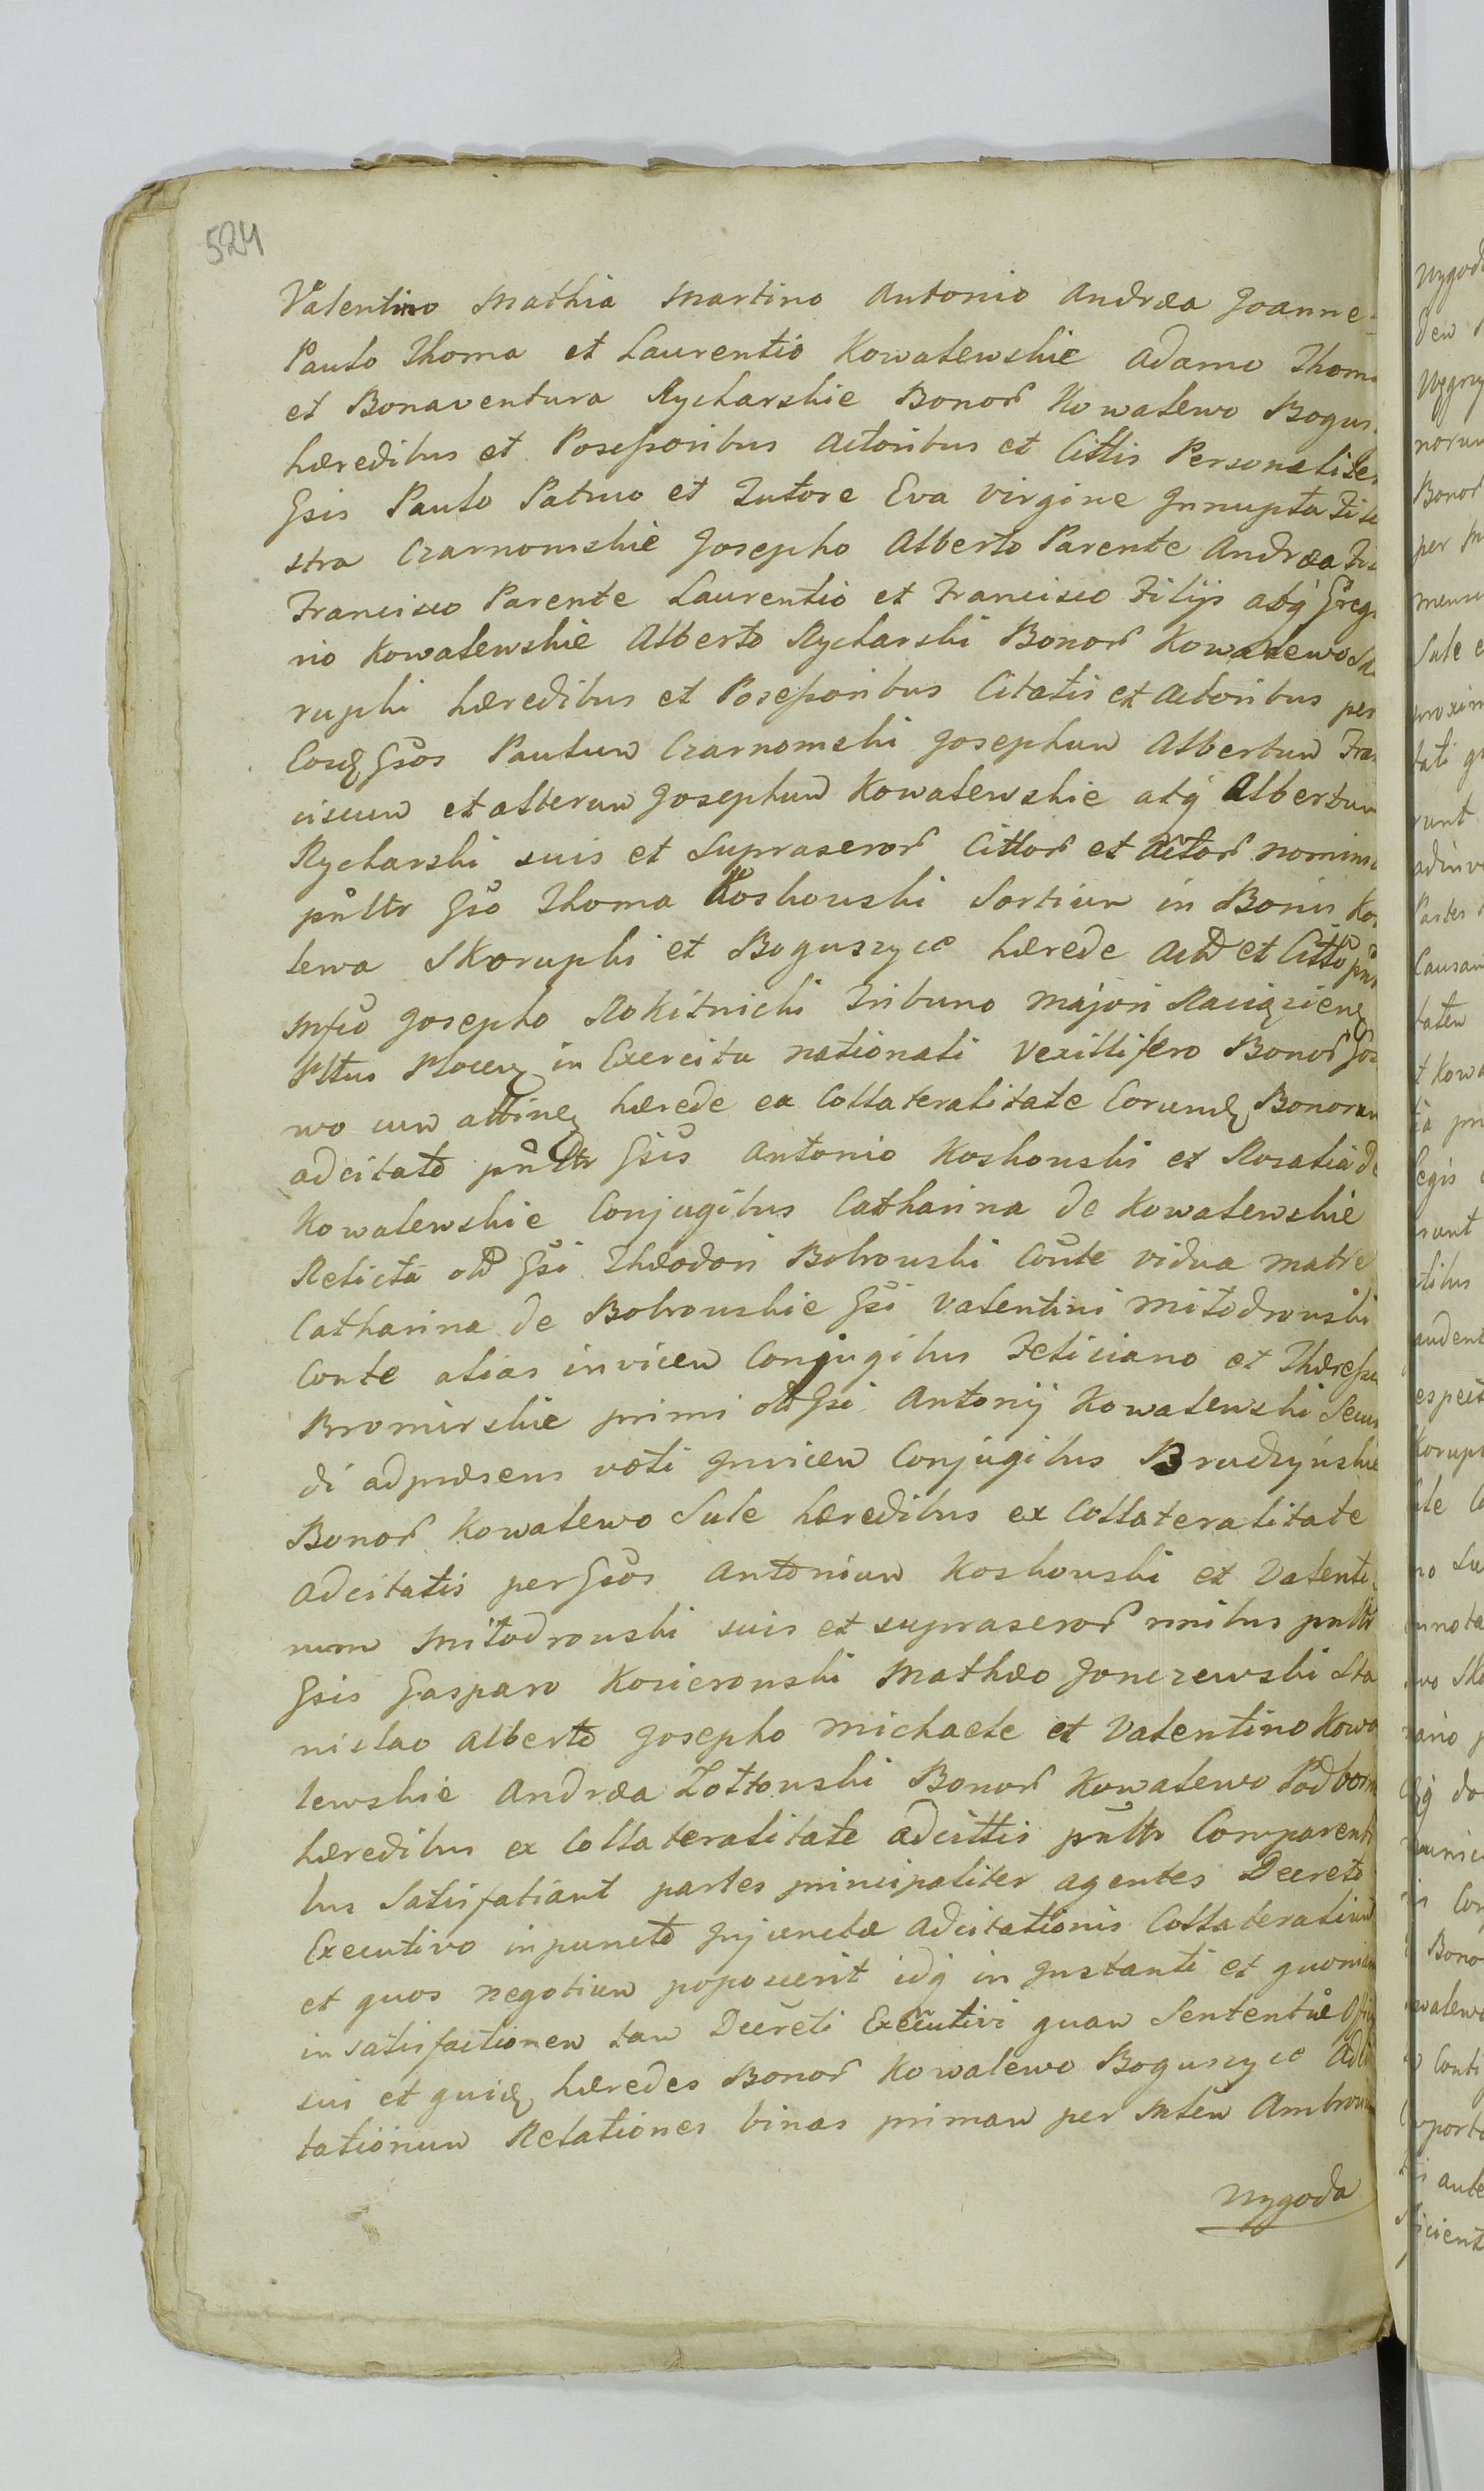 524
Valentino Mathia Martino Antonio Andræa Joanne
Paulo Thoma et Laurentio Kowalewskie Adamo Thom
et Bonaventura Rycharskie Bonor Kowalewo Bogus
hæredibus et Poseſsoribus Actoribus et Cittis Personaliter
Gsis Paulo Patruo et Tutore Eva Virgine Innupta Fi
stra Czarnomskie Josepho Alberto Parente Andræa Fi
Francisco Parente Laurentio et Francisco Filijs atq Greg
rio Kowalewskie Alberto Rycharski Bonor Kowalewo Sko
rupki hæredibus et Poseſsoribus Citatis et Actoribus per
Eosd Gsos Paulum Czarnomski Josephum Albertum Fran
ciscum et alterum Josephum Kowalewskie atq Albertum
Rycharski suis et Supraseror Cittor et Actor nomine
pnltr Gso Thoma Koskowski Sortium in Bonis Ko
lewa Skorupki et Boguszyce hærede Act et Citto
Mfco Josepho Rokitnicki Tribuno Majori Raciązien
Pltus Plocen in Exercitu nationali Vexillifero Bonor
wo cum attinen hærede ex Collateralitate Eorund Bonorum
adcitato pnltr Gsis Antonio Koskowski et Rosalia de
Kowalewskie Conjugibus Catharina de Kowalewskie
Relicta olt Gsi Theodori Bobrowski Conte vidua matre
Catharina de Bobrowskie Gsi Valentini Mitodrowski
Conte alias invicem Conjugibus Feliciano et Thæreſsa
Bromirskie primi olt Gsi Antonij Kowalewski Secun
di adpræsens voti Invicem Conjugibus Brudzynskie
Bonor Kowalewo Sule hæredibus ex Collateralitate
adcitatis per Gsos Antonium Koskowski et Valenti
num Mitodrowski suis et supraseror nnibus pnltr
Gsis Gasparo Kosierowski Mathæo Gonczewski Sta
nislao Alberto Josepho Michaele et Valentino Kowa
lewskie Andræa Zottowski Bonor Kowalewo Podborn
hæredibus ex Collateralitate adcittis pnltr Comparenti
bus Satisfatiant partes principaliter agentes Decreto
Executivo inpuncto Injunctæ Adcitationis Collateralium
et quos negotium poposcerit idq in Instanti et quoniam
in satisfactionem tam Decreti Executivi quam Sententiæ
sui et quid hæredes Bonor Kowalewo Boguszyce Adci
tationum Relationes binas primam per Mstem Ambrosium
Wygoda